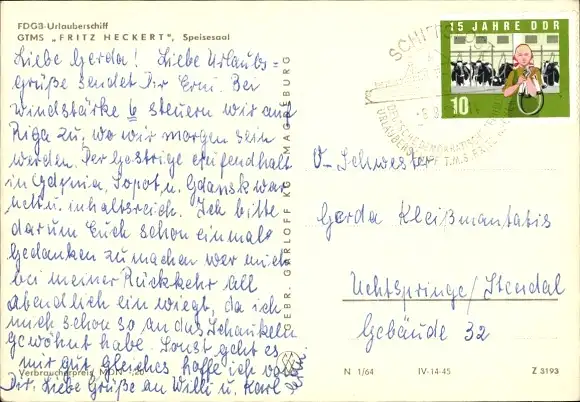 FDGB-Urlauberschiff
GTMS „FRITZ HECKERT", Speisesaal
Liebe Gerda! Liebe Urlaubs=
grüße sendet Dir Erni. Bei
Windstärke 6 steuern wir auf
Riga zu, wo wir morgen sein
werden. Der gestrige Aufenthalt
in Gdynia, Sopot u. Gdansk war
nett u. inhaltsreich. Ich bitte
darum Euch schon einmal
Gedanken zu machen wer mich
bei meiner Rückkehr all
abendlich ein wiegt, da ich
mich schon so an das Schaukeln
gewöhnt habe. Sonst geht es
mir gut, gleiches hoffe ich von
Dir. Liebe Grüße an Willi u. Karl
Verbraucherpreis MDN -,20
GEBR. GARLOFF KG MAGDEBURG
15 JAHRE DDR
10
URLAUBERSCHIFF T.M.S.
Schwester
Gerda Kleißmantatis
Uchtspringe/Stendal
Gebäude 32
N 1/64
IV-14-45
Z 3193